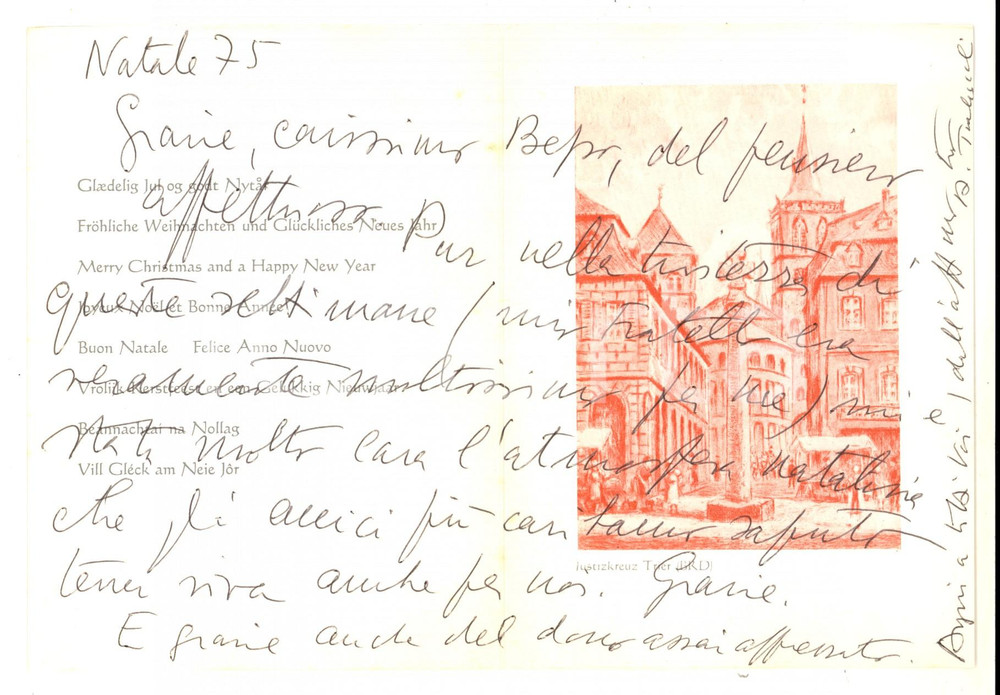 Natale 75
Grazie, carissimo Bepo, del pensiero
affettuoso. Pur nella tristezza di
queste settimane (mio fratello era
veramente moltissimo per me) mi è
stata molto cara l'atmosfera natalizia
che gli amici più cari hanno saputo
tener viva anche per noi. Grazie.
E grazie anche del dono assai apprezzato.
Auguri a tutti voi, dall'aff.mo tuo
Glædelig Jul og godt Nytår
Fröhliche Weihnachten und Glückliches Neues Jahr
Merry Christmas and a Happy New Year
Joyeux Noël et Bonne Année
Buon Natale Felice Anno Nuovo
Vrolijk Kerstfeest en een Gelukkig Nieuwjaar
Beannachtaí na Nollag
Vill Gléck am Neie Jôr
Justizkreuz Trier (BRD)